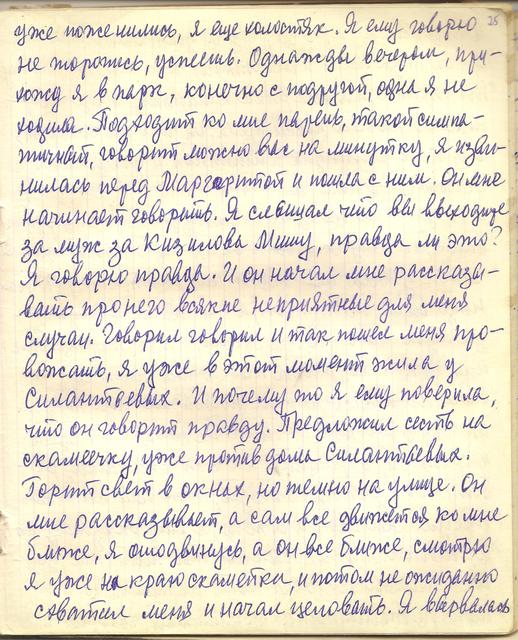 25
уже поженились, я еще холостяк. Я ему говорю
не торопись, успеешь. Однажды вечером, при-
хожу я в парк, конечно с подругой, одна я не
ходила. Подходит ко мне парень, такой симпа-
тичный, говорит можно вас на минутку, я изви-
нилась перед Маргаритой и пошла с ним. Он мне
начинает говорить. Я слышал что вы выходите
за муж за Кизилова Мишу, правда ли это?
Я говорю правда. И он начал мне рассказы-
вать про него всякие неприятные для меня
случаи. Говорил говорил и так пошел меня про-
вожать, я уже в этот момент жила у
Силантьевых. И почему то я ему поверила,
что он говорит правду. Предложил сесть на
скамеечку, уже против дома Силантьевых.
Горит свет в окнах, но темно на улице. Он
мне рассказывает, а сам все движется ко мне
ближе, я отодвинусь, а он все ближе, смотрю
я уже на краю скаметки, и потом не ожиданно
схватил меня и начал целовать. Я вырвалась